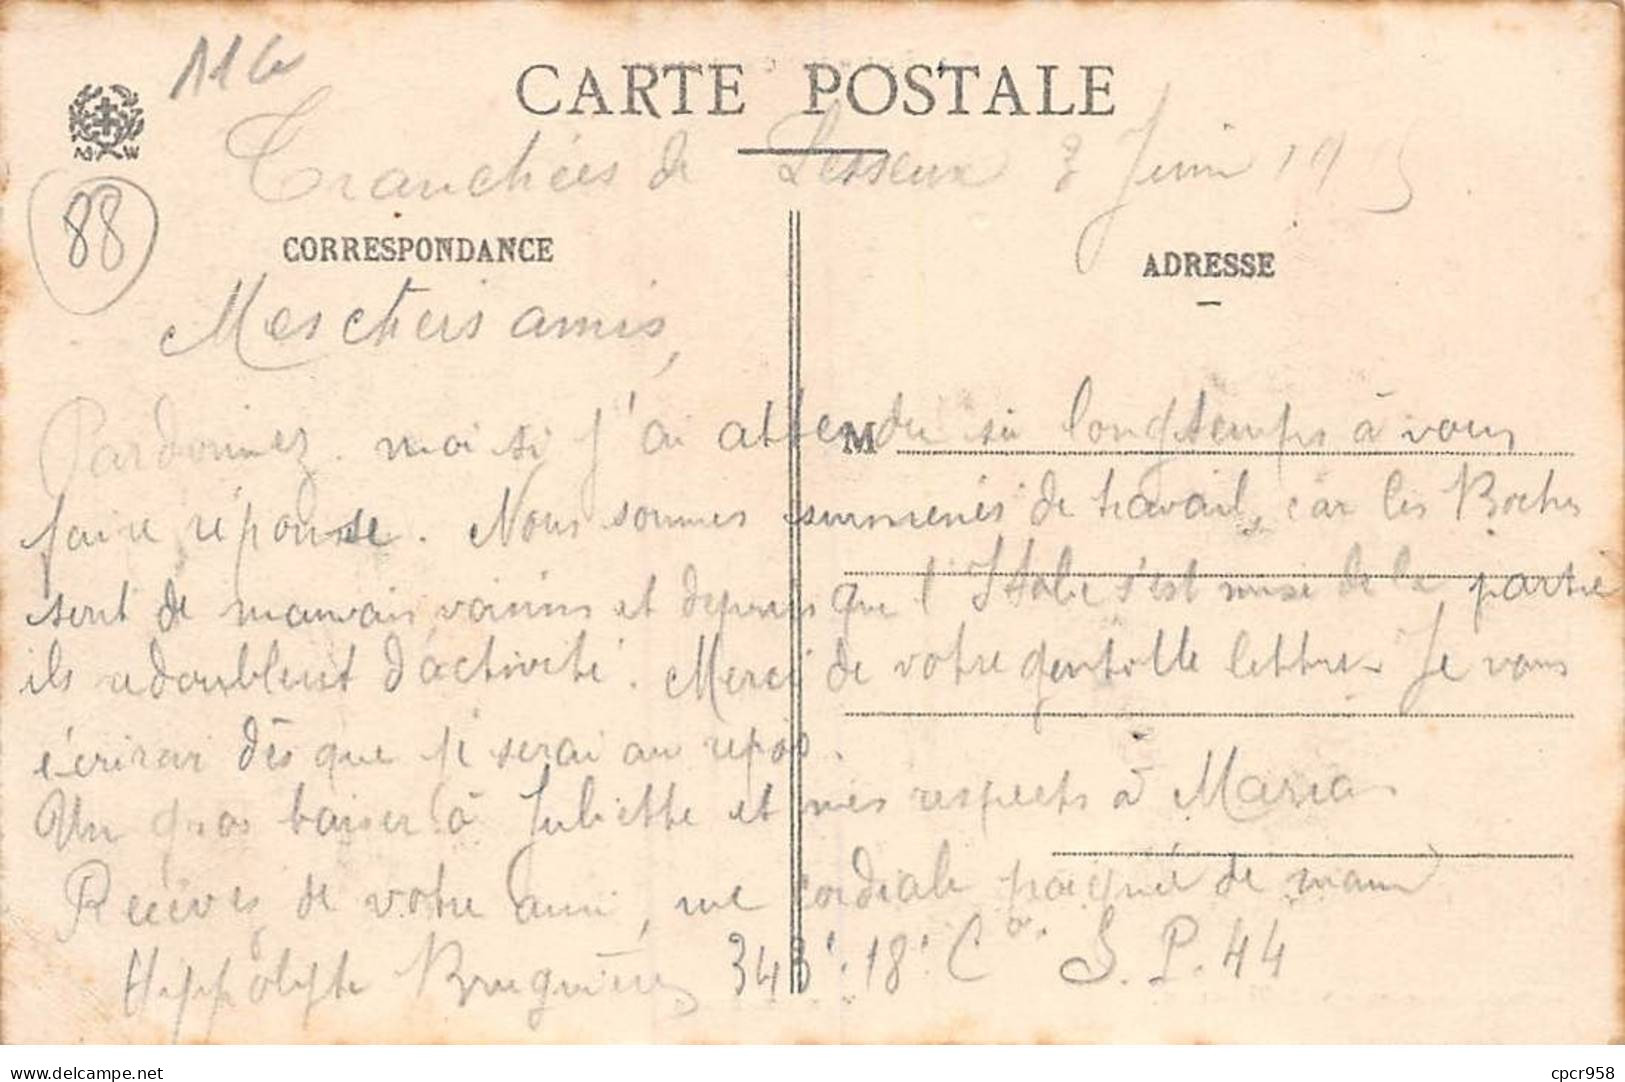 116
CARTE POSTALE
N W
88
Tranchées de Lesseux 3 Juin 1915
CORRESPONDANCE
ADRESSE
Mes chers amis,
M
Pardonnez moi si j'ai attendu si longtemps à vous
faire réponse. Nous sommes surmenés de travail, car les Boches
sont de mauvais voisins et depuis que l'Italie s'est mise de la partie
ils redoublent d'activité. Merci de votre gentille lettre. Je vous
écrirai dès que je serai au repos.
Un gros baiser à Juliette et mes respects à Maria
Recevez de votre ami, une cordiale poignée de main
Hippolyte Bruguière 343e. 18e Cie. S.P. 44
delcampe.net
cpcr958